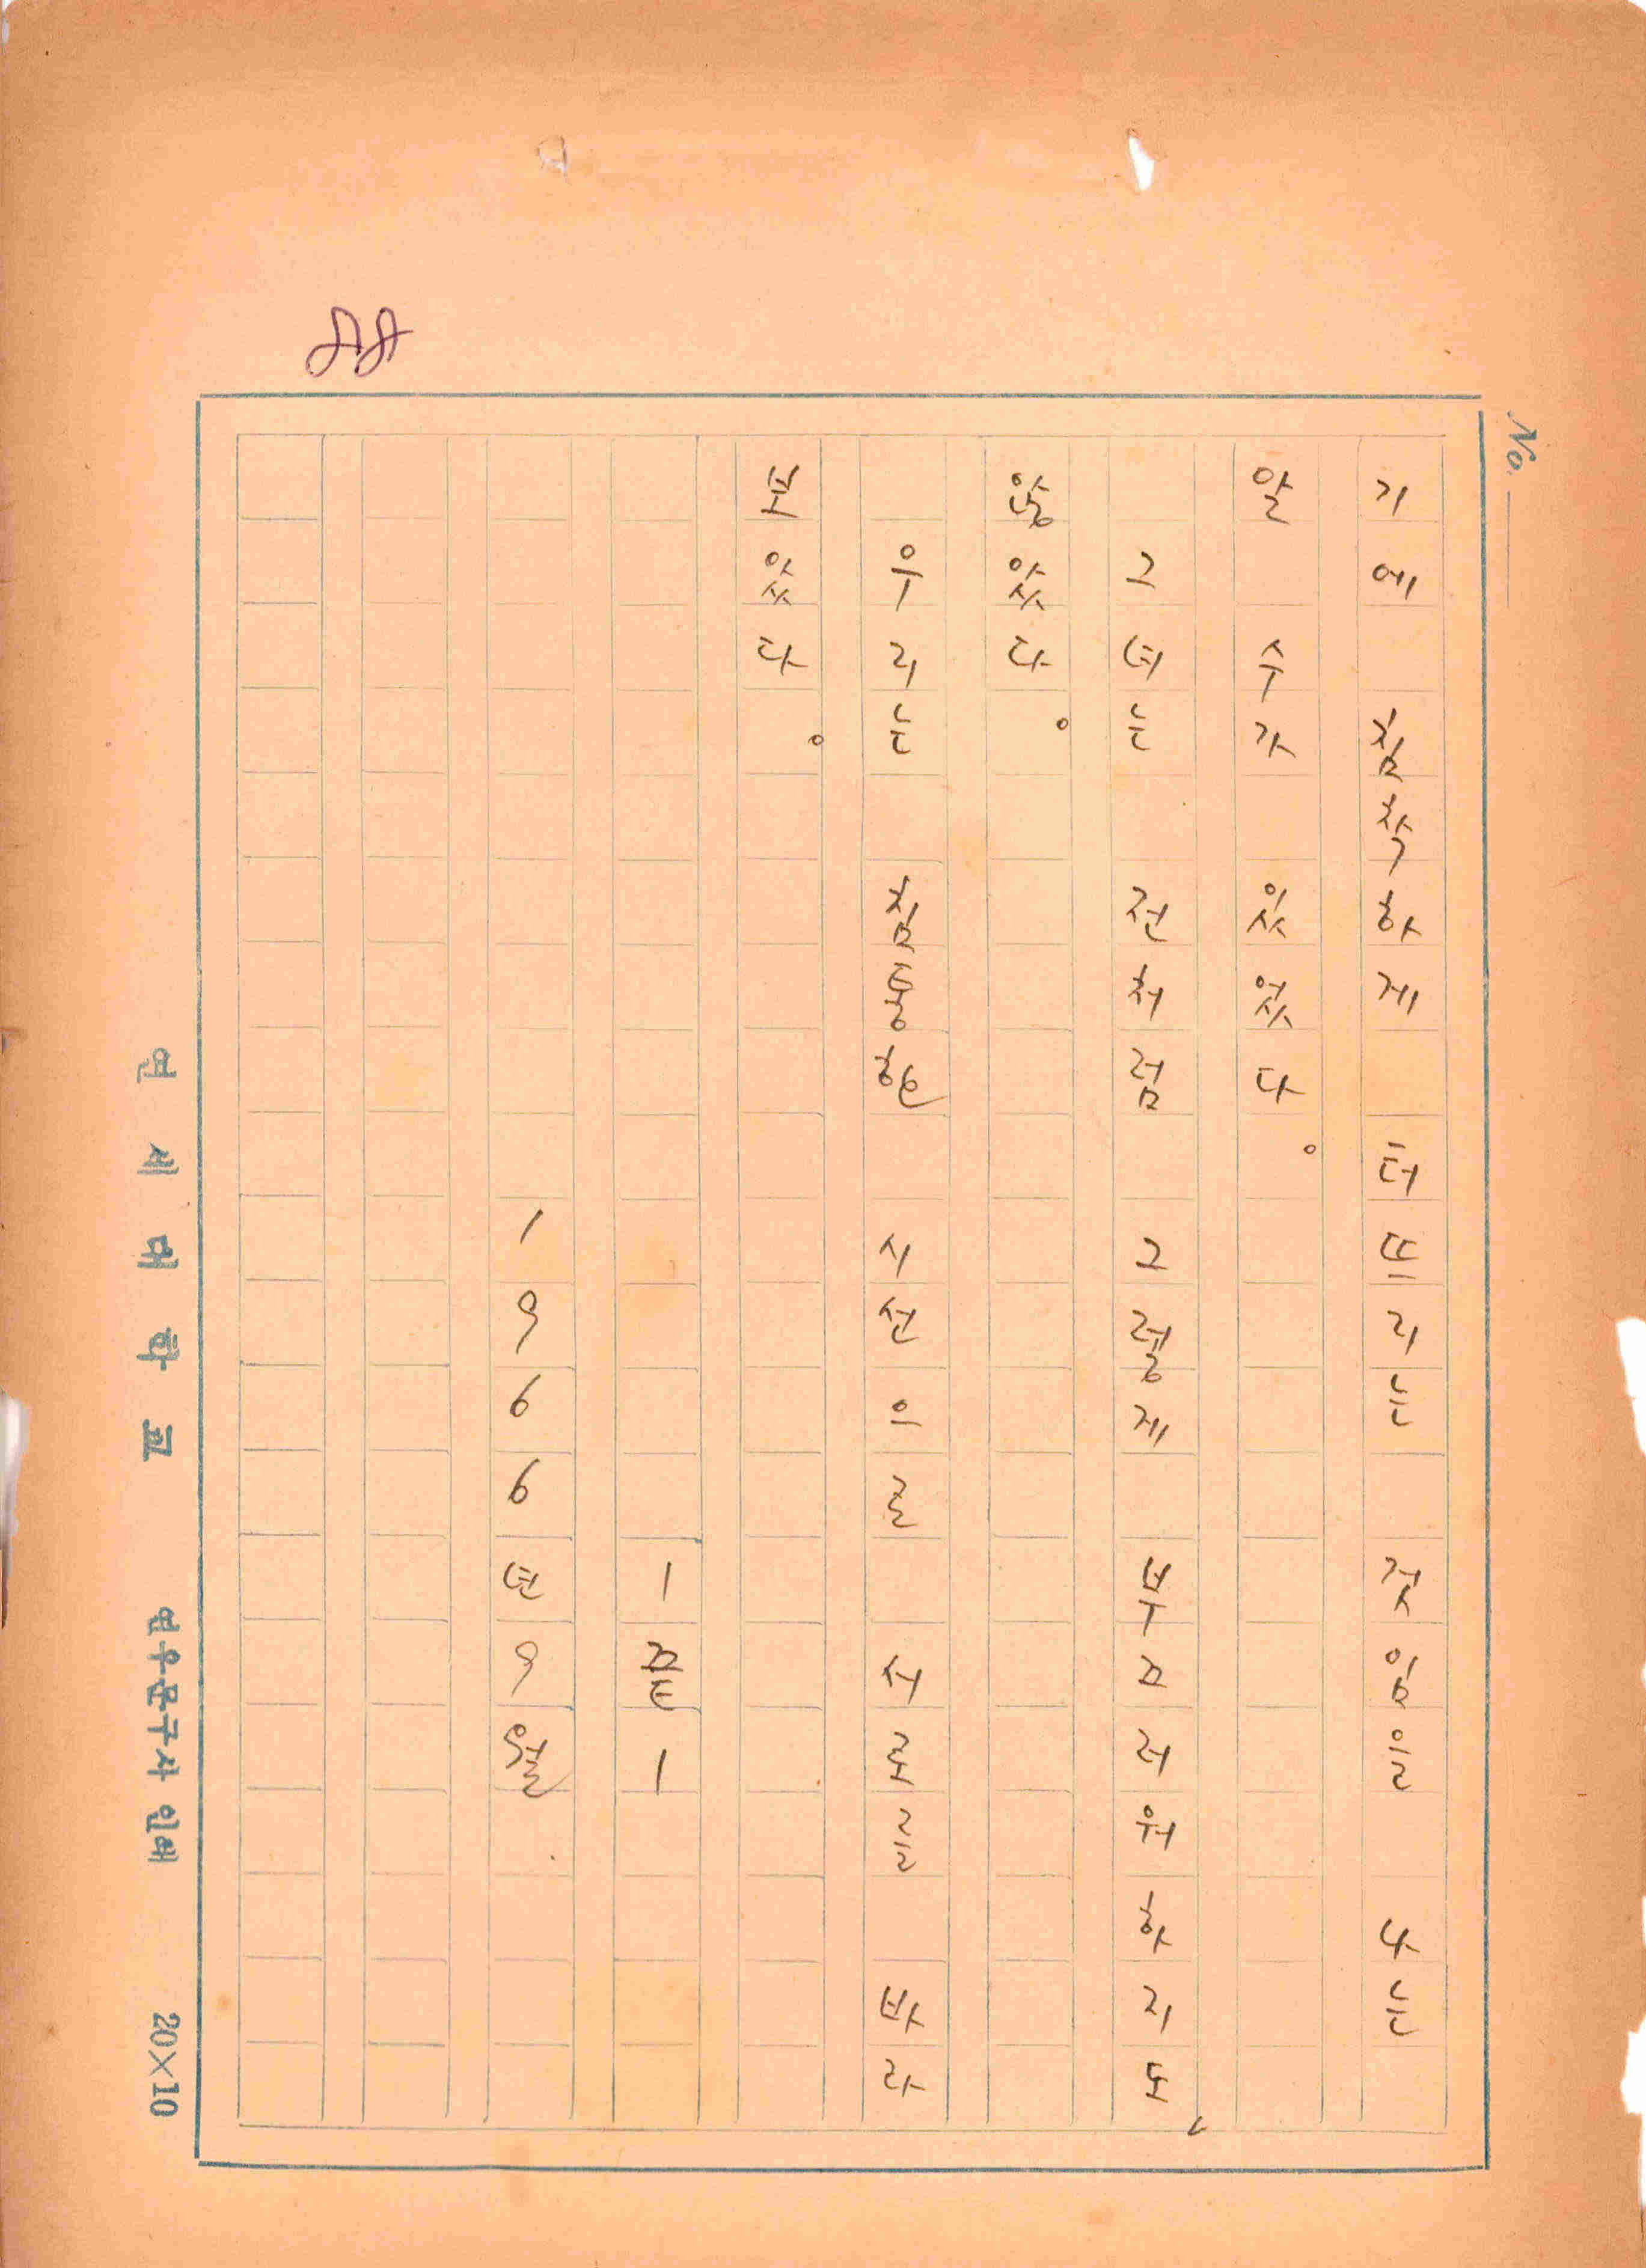 No.
기에 침착하게 터뜨리는 것임을 나는
알 수가 있었다。
그녀는 전처럼 그렇게 부끄러워하지도
않았다。
우리는 침통한 시선으로 서로를 바라
보았다。
-끝-
1966년 9월
88
연세대학교 연우문구사 인쇄 20×10